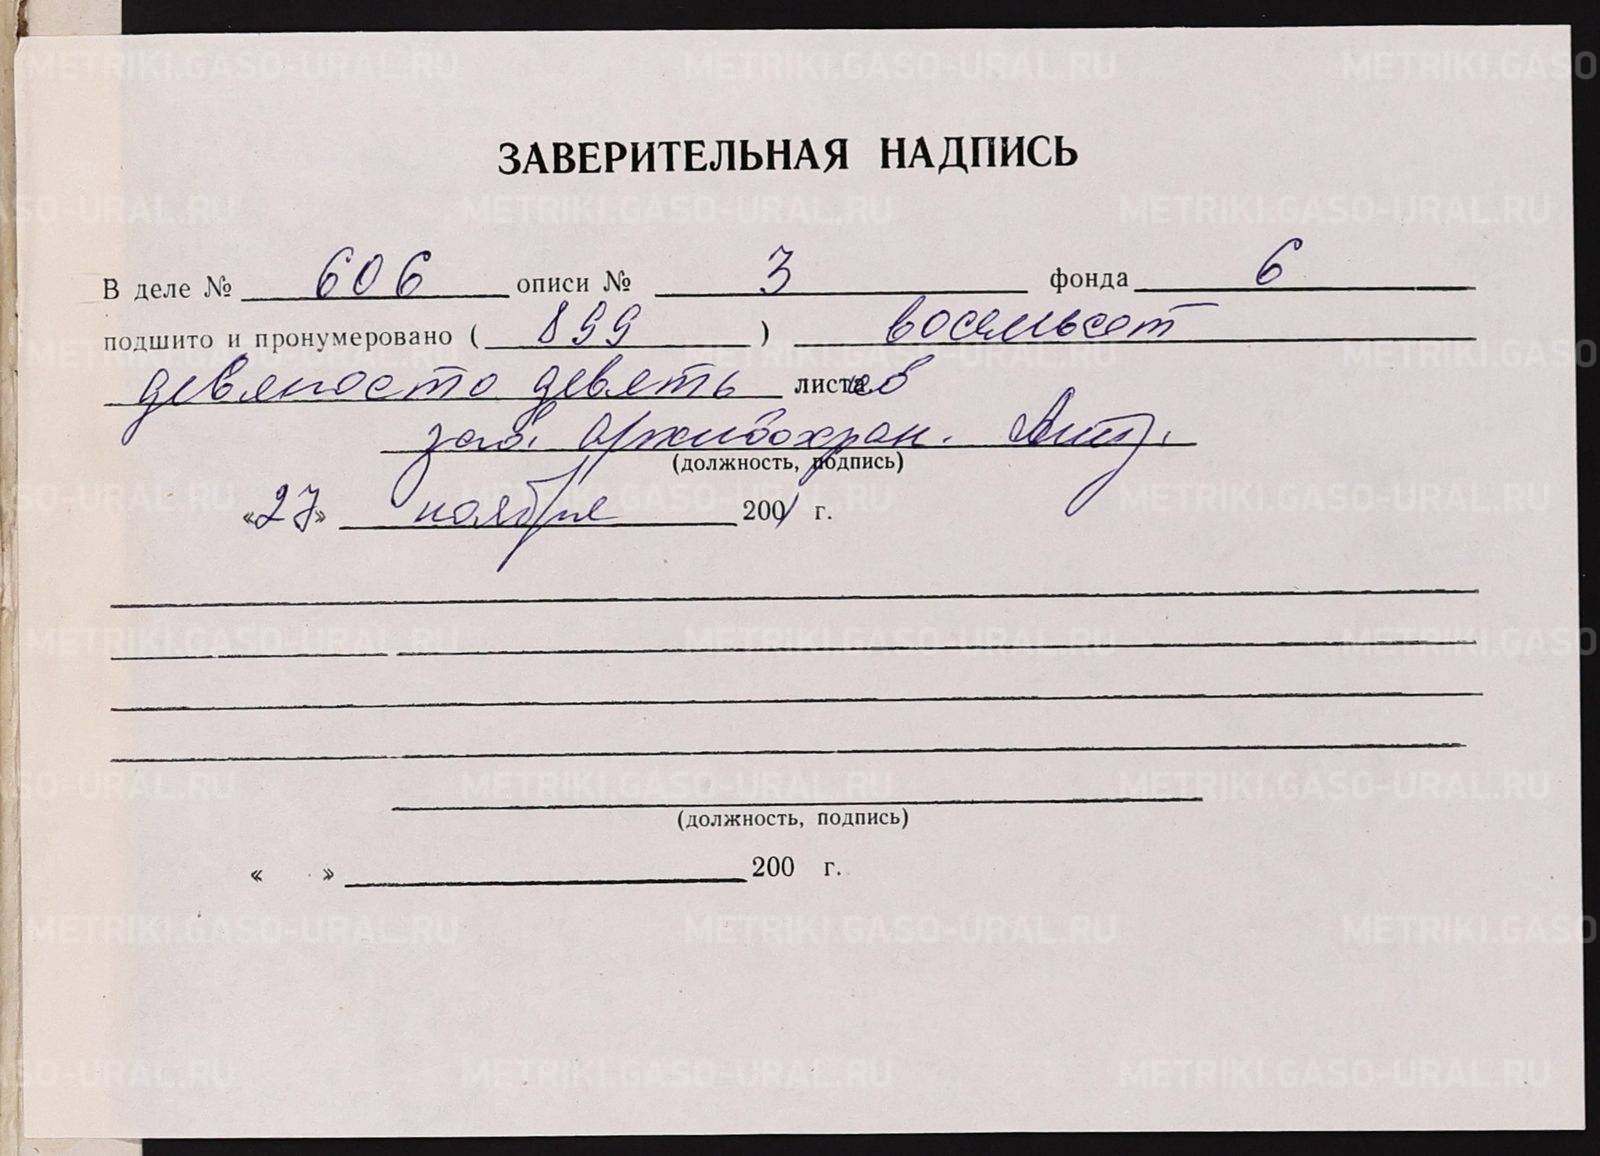 ЗАВЕРИТЕЛЬНАЯ НАДПИСЬ
В деле № 606 описи № 3 фонда 6
подшито и пронумеровано ( 899 ) восемьсот
девяносто девять листов
зав. архивохран.
(должность, подпись)
«27» ноября 2001 г.
(должность, подпись)
« » 200 г.
METRIKI.GASO-URAL.RU